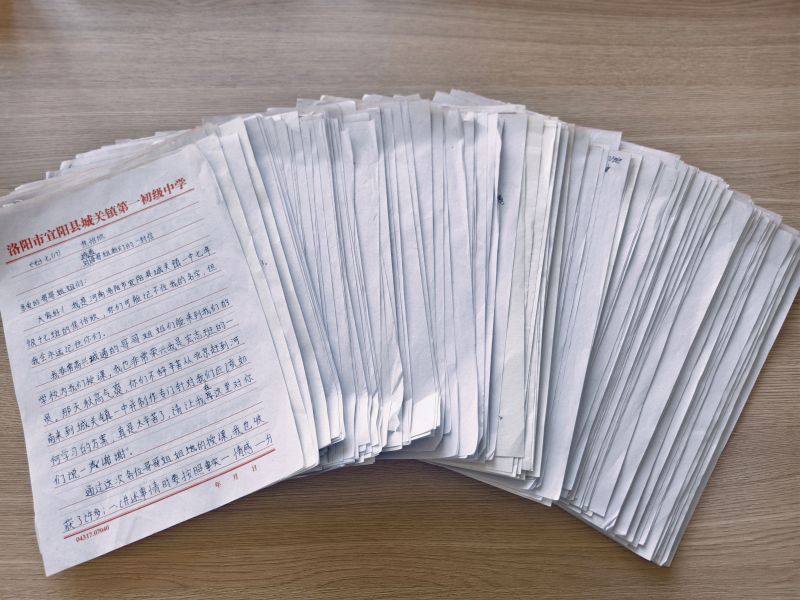 洛阳市宜阳县城关镇第一初级中学
七(17) 焦怡欣
哥哥姐姐们的一封信
亲爱的哥哥姐姐们:
大家好!我是河南洛阳市宜阳县城关镇一中七年
级十七班的焦怡欣,你们可能记不住我的名字,但
我会永远记住你们。
我非常高兴 的哥哥姐姐们能来到我们的
学校为我们授课,我也非常荣兴我是宏志班的一
员,那天秋高气爽,你们不辞辛苦从北京赶到河
南来到城关镇一中并制作专门针对我们应该如
何学习的方案,真是太辛苦了,请让我在这里对你
们说一声谢谢!
通过这次各位哥哥姐姐地的授课,我也收
获了许多:一、讲述事情时要按照事实—情感—分
年 月 日
04317.07040